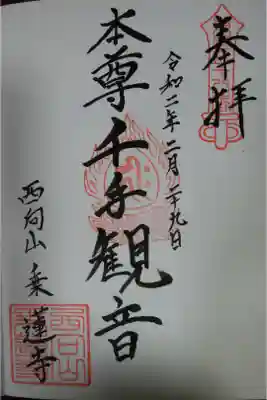 奉拝
令和二年二月二十九日
本尊千手観音
西向山乗蓮寺